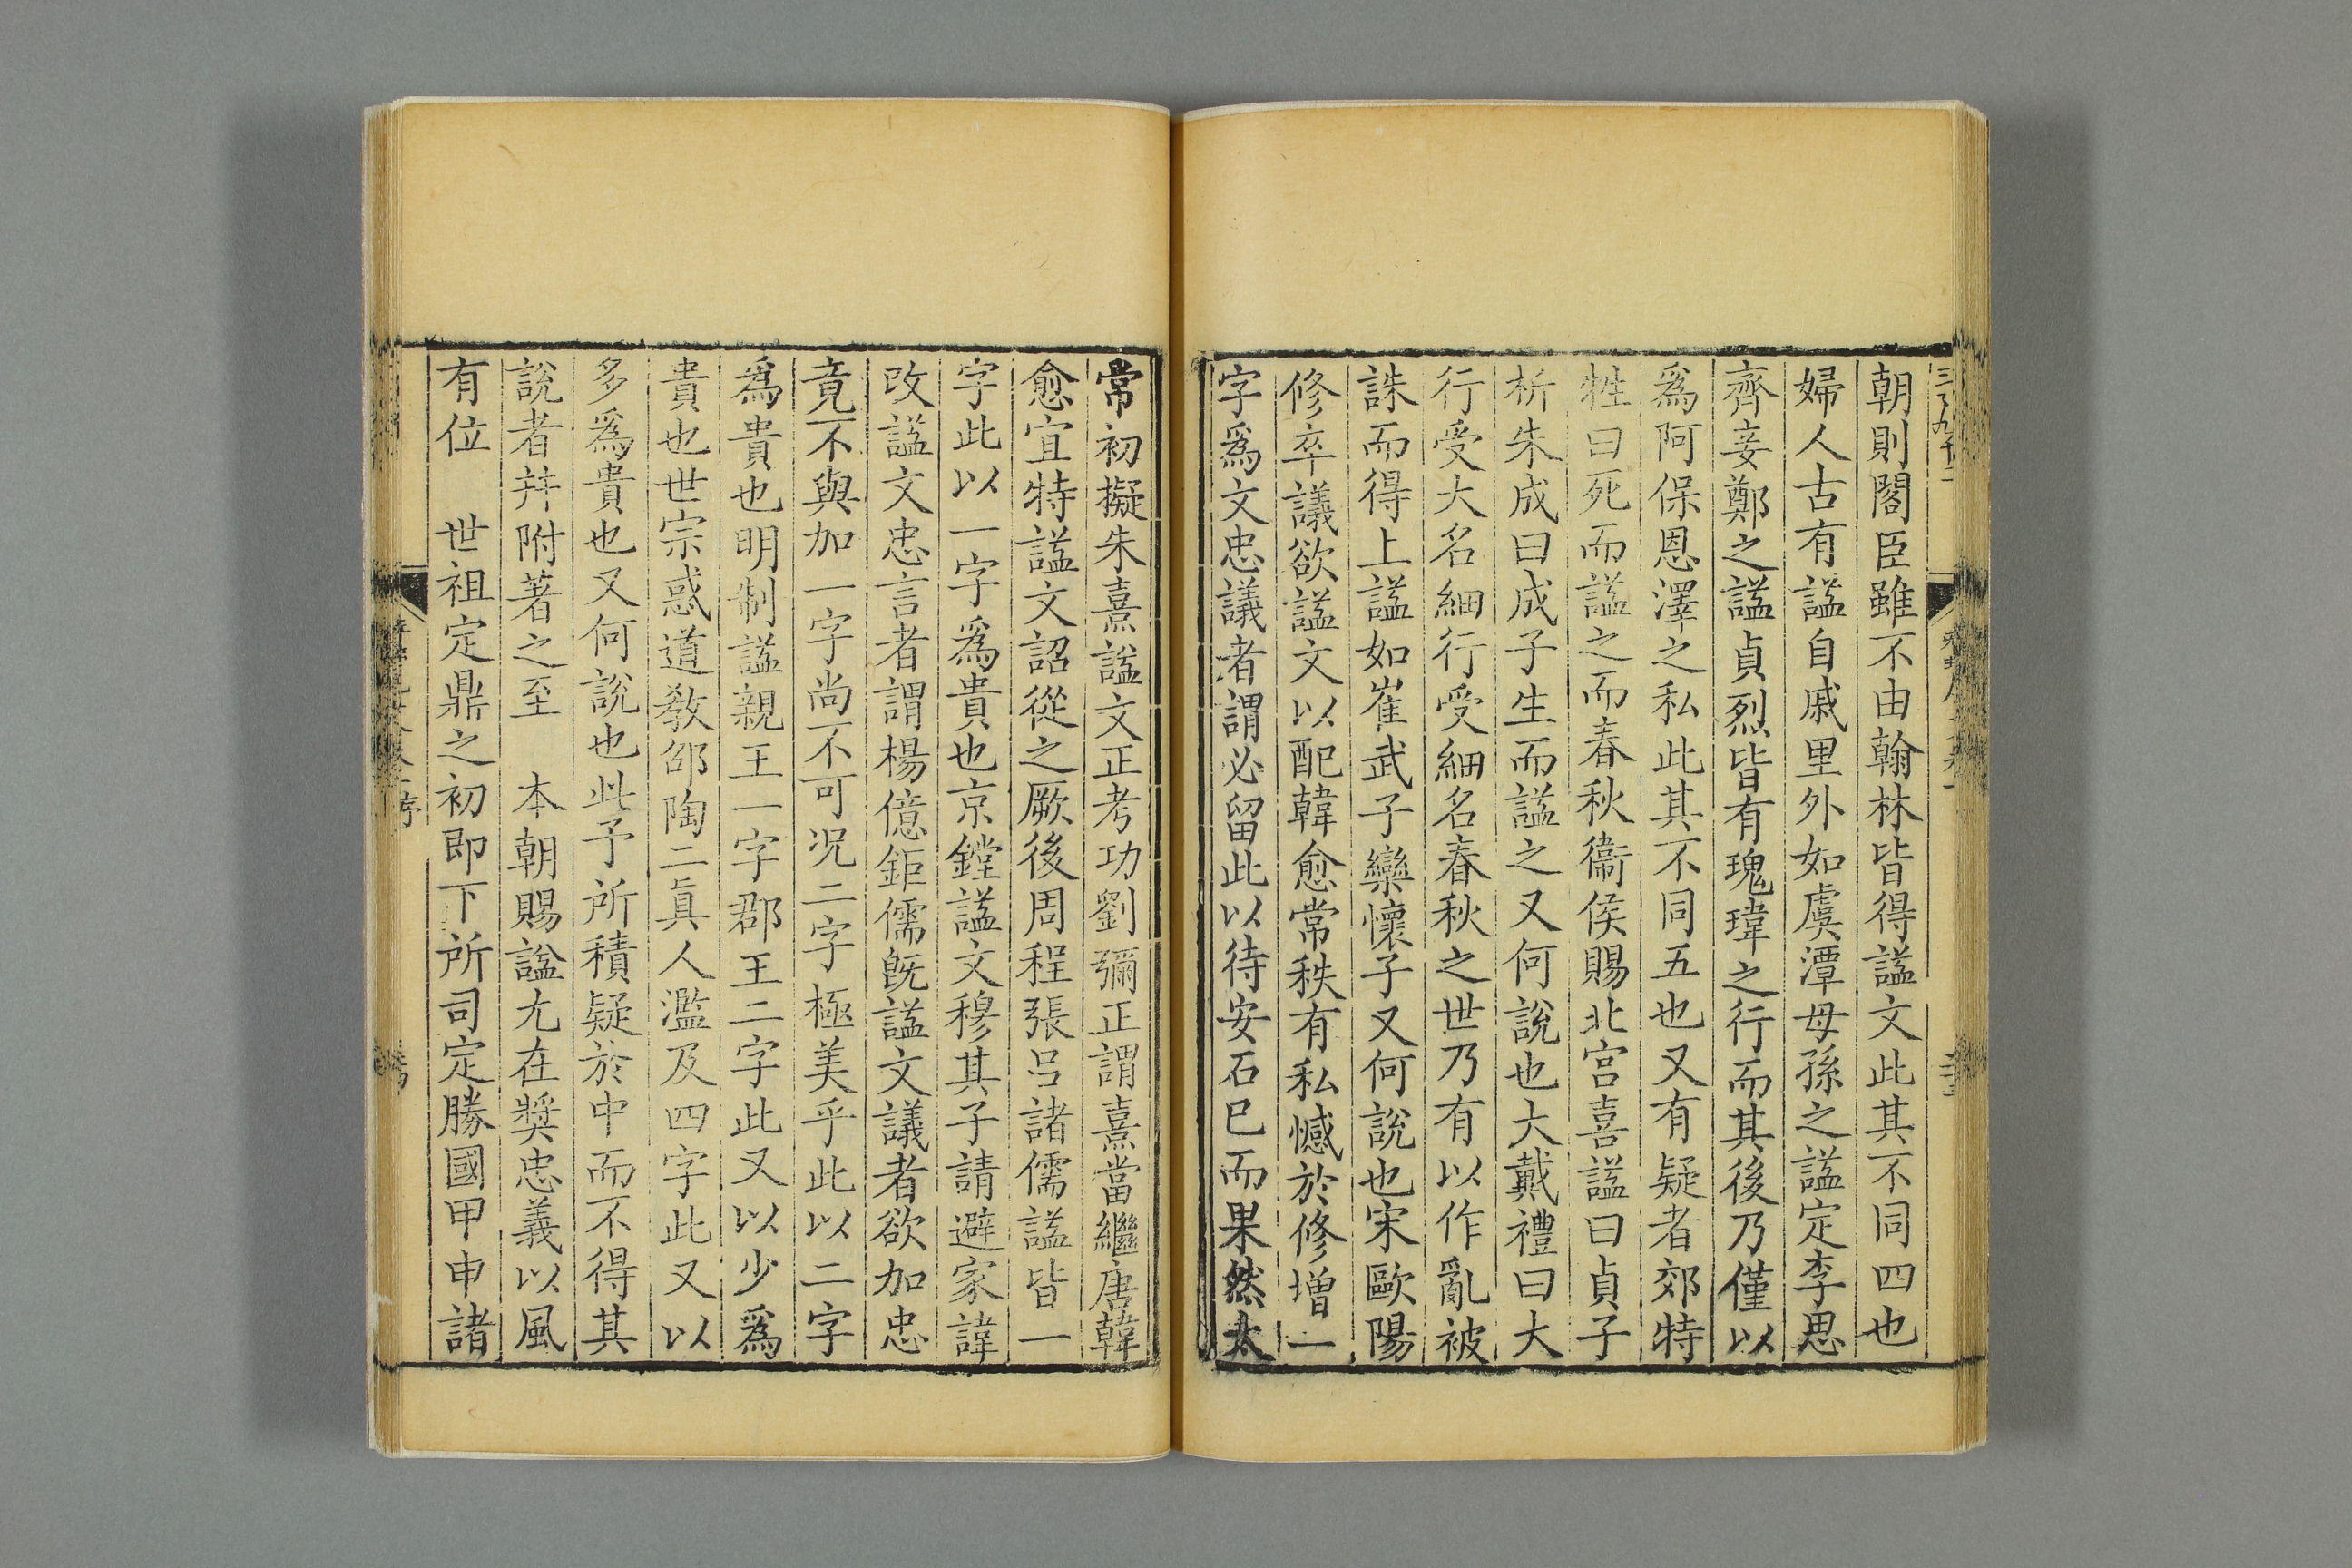 朝則閣臣雖不由翰林皆得謚文此其不同四也
婦人古有謚自戚里外如虞潭母孫之謚定李思
齊妾鄭之謚貞烈皆有瑰瑋之行而其後乃僅以
爲阿保恩澤之私此其不同五也又有疑者郊特
牲曰死而謚之而春秋衞侯賜北宮喜謚曰貞子
析朱成曰成子生而謚之又何說也大戴禮曰大
行受大名細行受細名春秋之世乃有以作亂被
誅而得上謚如崔武子欒懷子又何說也宋歐陽
修卒議欲謚文以配韓愈常秩有私憾於修增一
字爲文忠議者謂必留此以待安石已而果然太
常初擬朱熹謚文正考功劉彌正謂熹當繼唐韓
愈宜特謚文詔從之厥後周程張呂諸儒謚皆一
字此以一字爲貴也京鏜謚文穆其子請避家諱
改謚文忠言者謂楊億鉅儒旣謚文議者欲加忠
竟不與加一字尚不可况二字極美乎此以二字
爲貴也明制謚親王一字郡王二字此又以少爲
貴也世宗惑道教邵陶二眞人濫及四字此又以
多爲貴也又何說也此予所積疑於中而不得其
說者幷附著之至　本朝賜謚尤在奬忠義以風
有位　世祖定鼎之初即下所司定勝國甲申諸